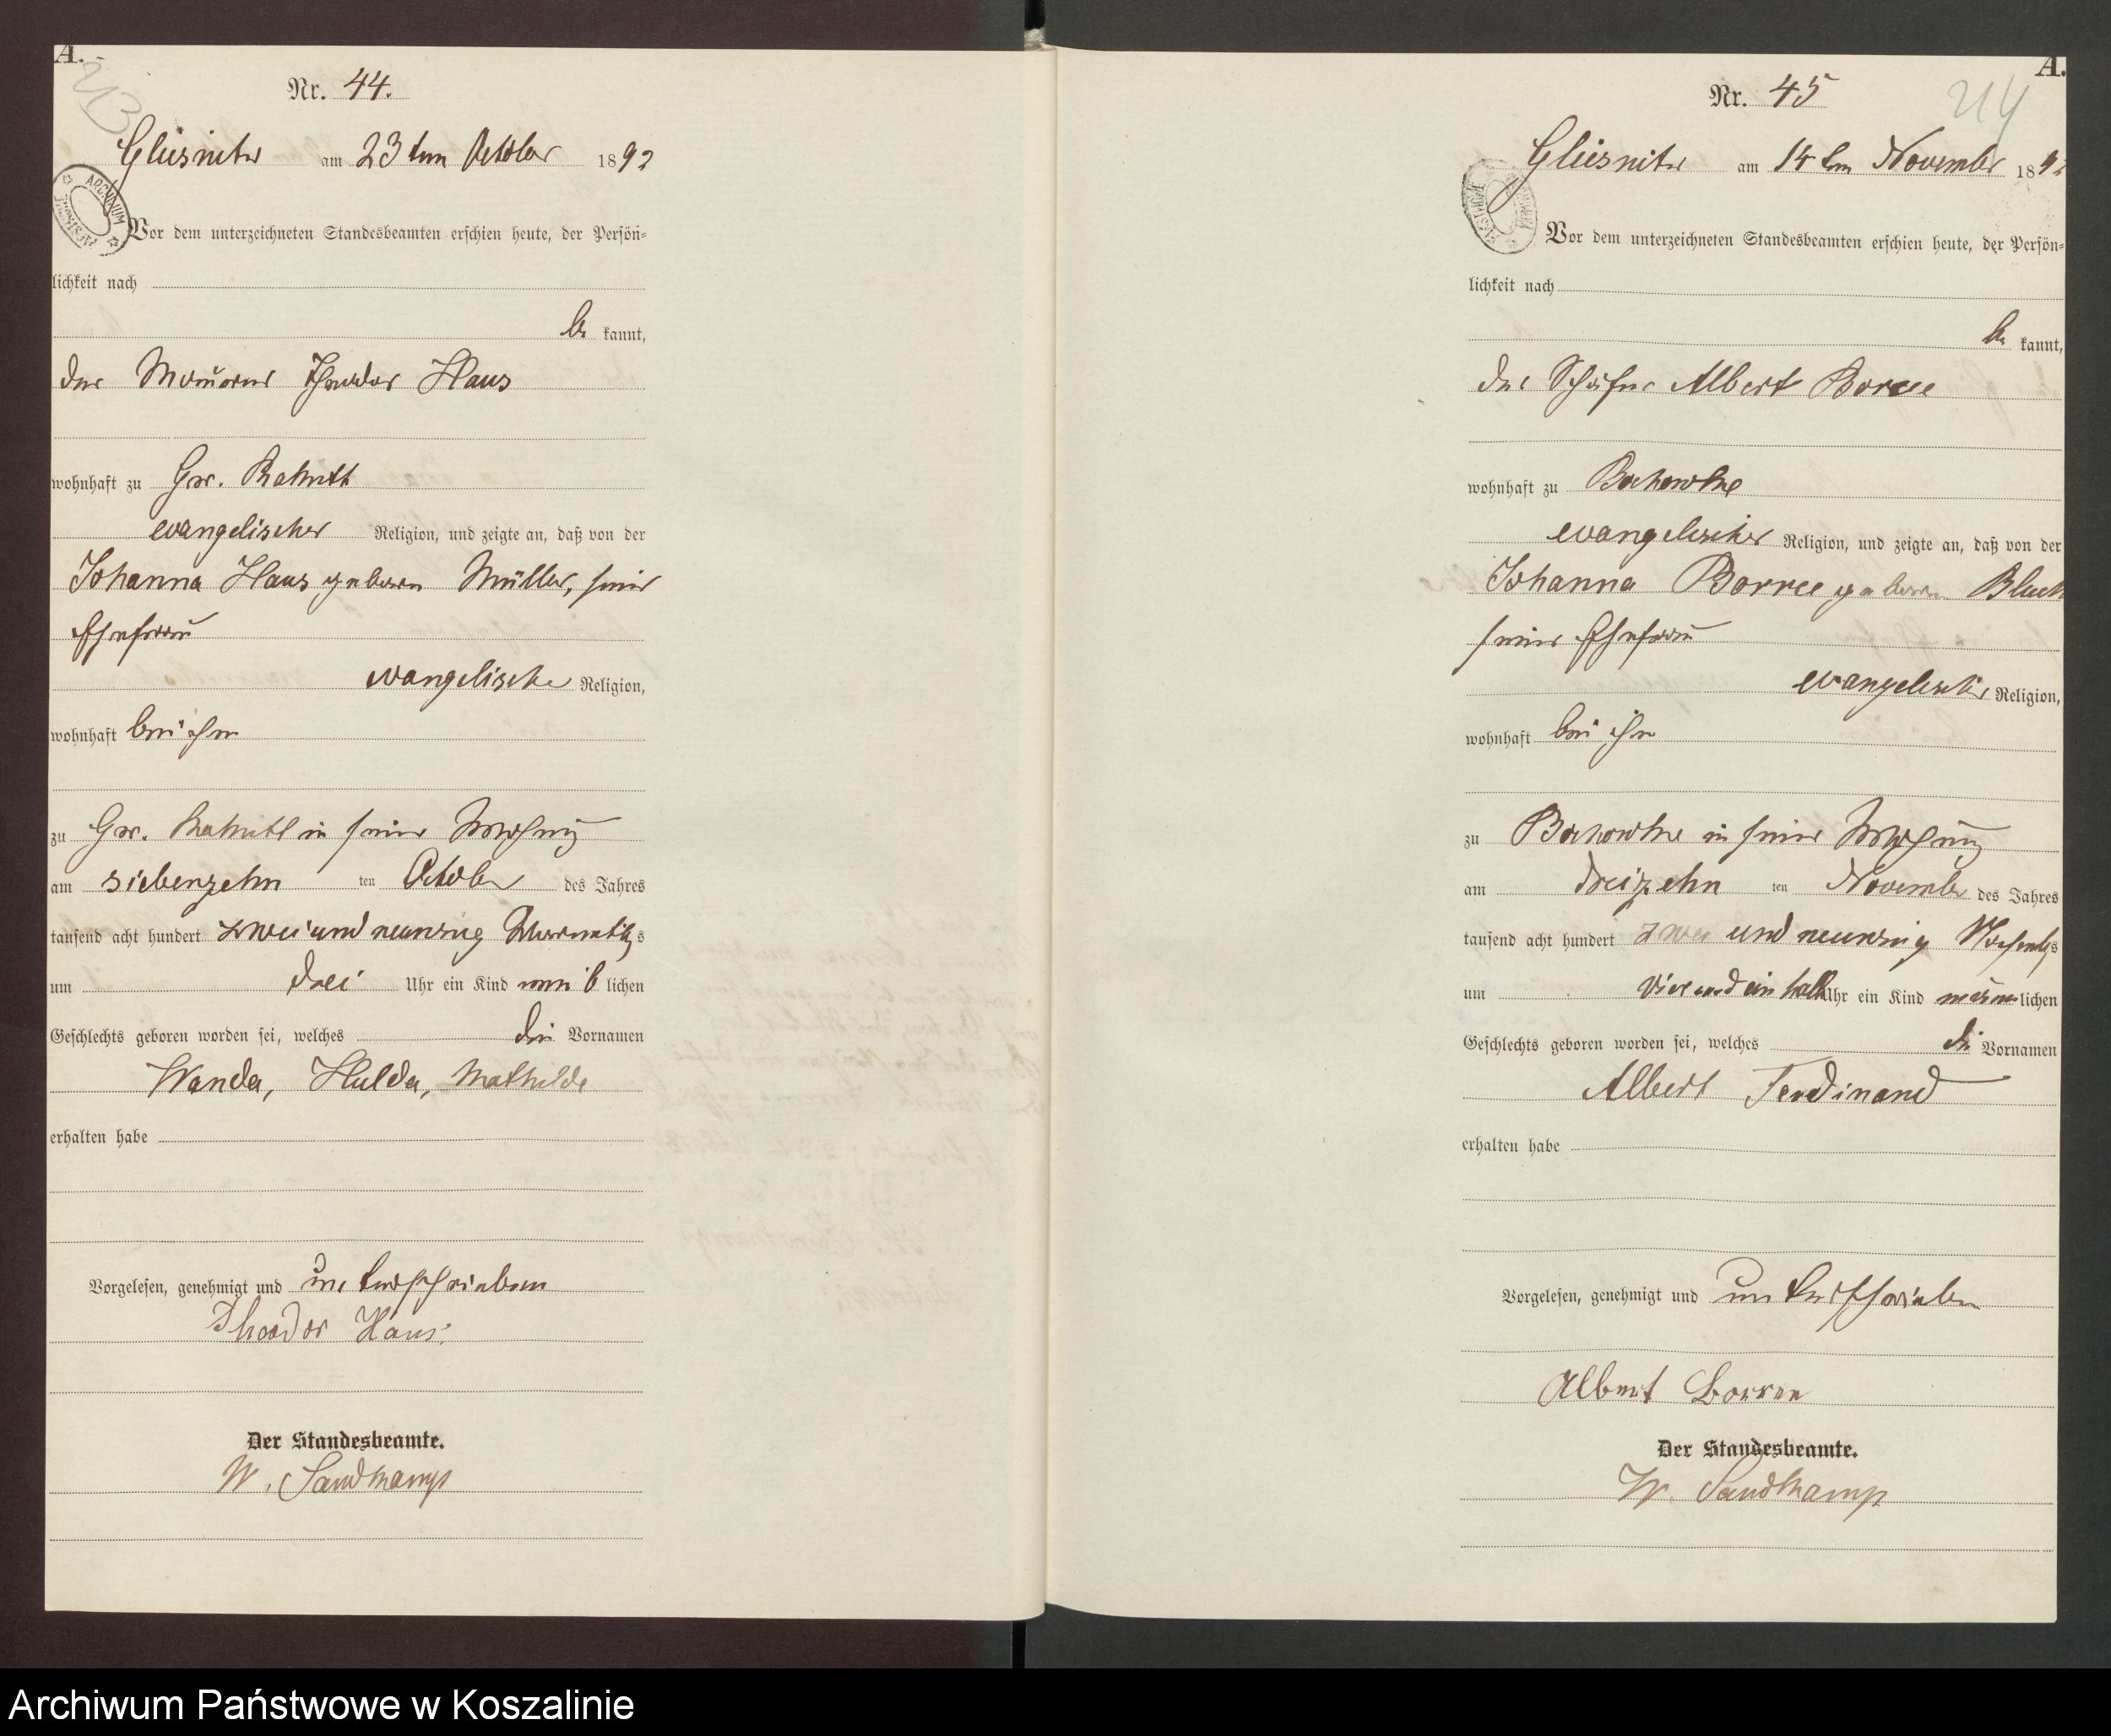 A.
213
Nr. 44.
Gliesnitz am 23ten October 1892
ARCHIWUM
Vor dem unterzeichneten Standesbeamten erschien heute, der Persön=
lichkeit nach
be kannt,
der Maurer Theodor Haus
wohnhaft zu Gr. Rakitt
evangelischer Religion, und zeigte an, daß von der
Johanna Haus geboren Müller, seiner
Ehefrau
evangelischer Religion,
wohnhaft bei ihm
zu Gr. Rakitt in seiner Wohnung
am siebenzehn ten October des Jahres
tausend acht hundert zwei und neunzig Vormittags
um drei Uhr ein Kind weib lichen
Geschlechts geboren worden sei, welches die Vornamen
Wanda, Hulda, Mathilde
erhalten habe
Vorgelesen, genehmigt und unterschrieben
Theodor Haus.
Der Standesbeamte.
W. Sandkamp
A.
214
Nr. 45
Gliesnitz am 14ten November 1892
Vor dem unterzeichneten Standesbeamten erschien heute, der Persön=
lichkeit nach
be kannt,
der Schäfer Albert Borree
wohnhaft zu Bochowke
evangelischer Religion, und zeigte an, daß von der
Johanna Borree geboren
seiner Ehefrau
evangelischer Religion,
wohnhaft bei ihm
zu Bochowke in seiner Wohnung
am dreizehn ten November des Jahres
tausend acht hundert zwei und neunzig Nachmittags
um vier und ein halb Uhr ein Kind männ lichen
Geschlechts geboren worden sei, welches die Vornamen
Albert Ferdinand
erhalten habe
Vorgelesen, genehmigt und unterschrieben
Albert Borree
Der Standesbeamte.
W. Sandkamp
Archiwum Państwowe w Koszalinie